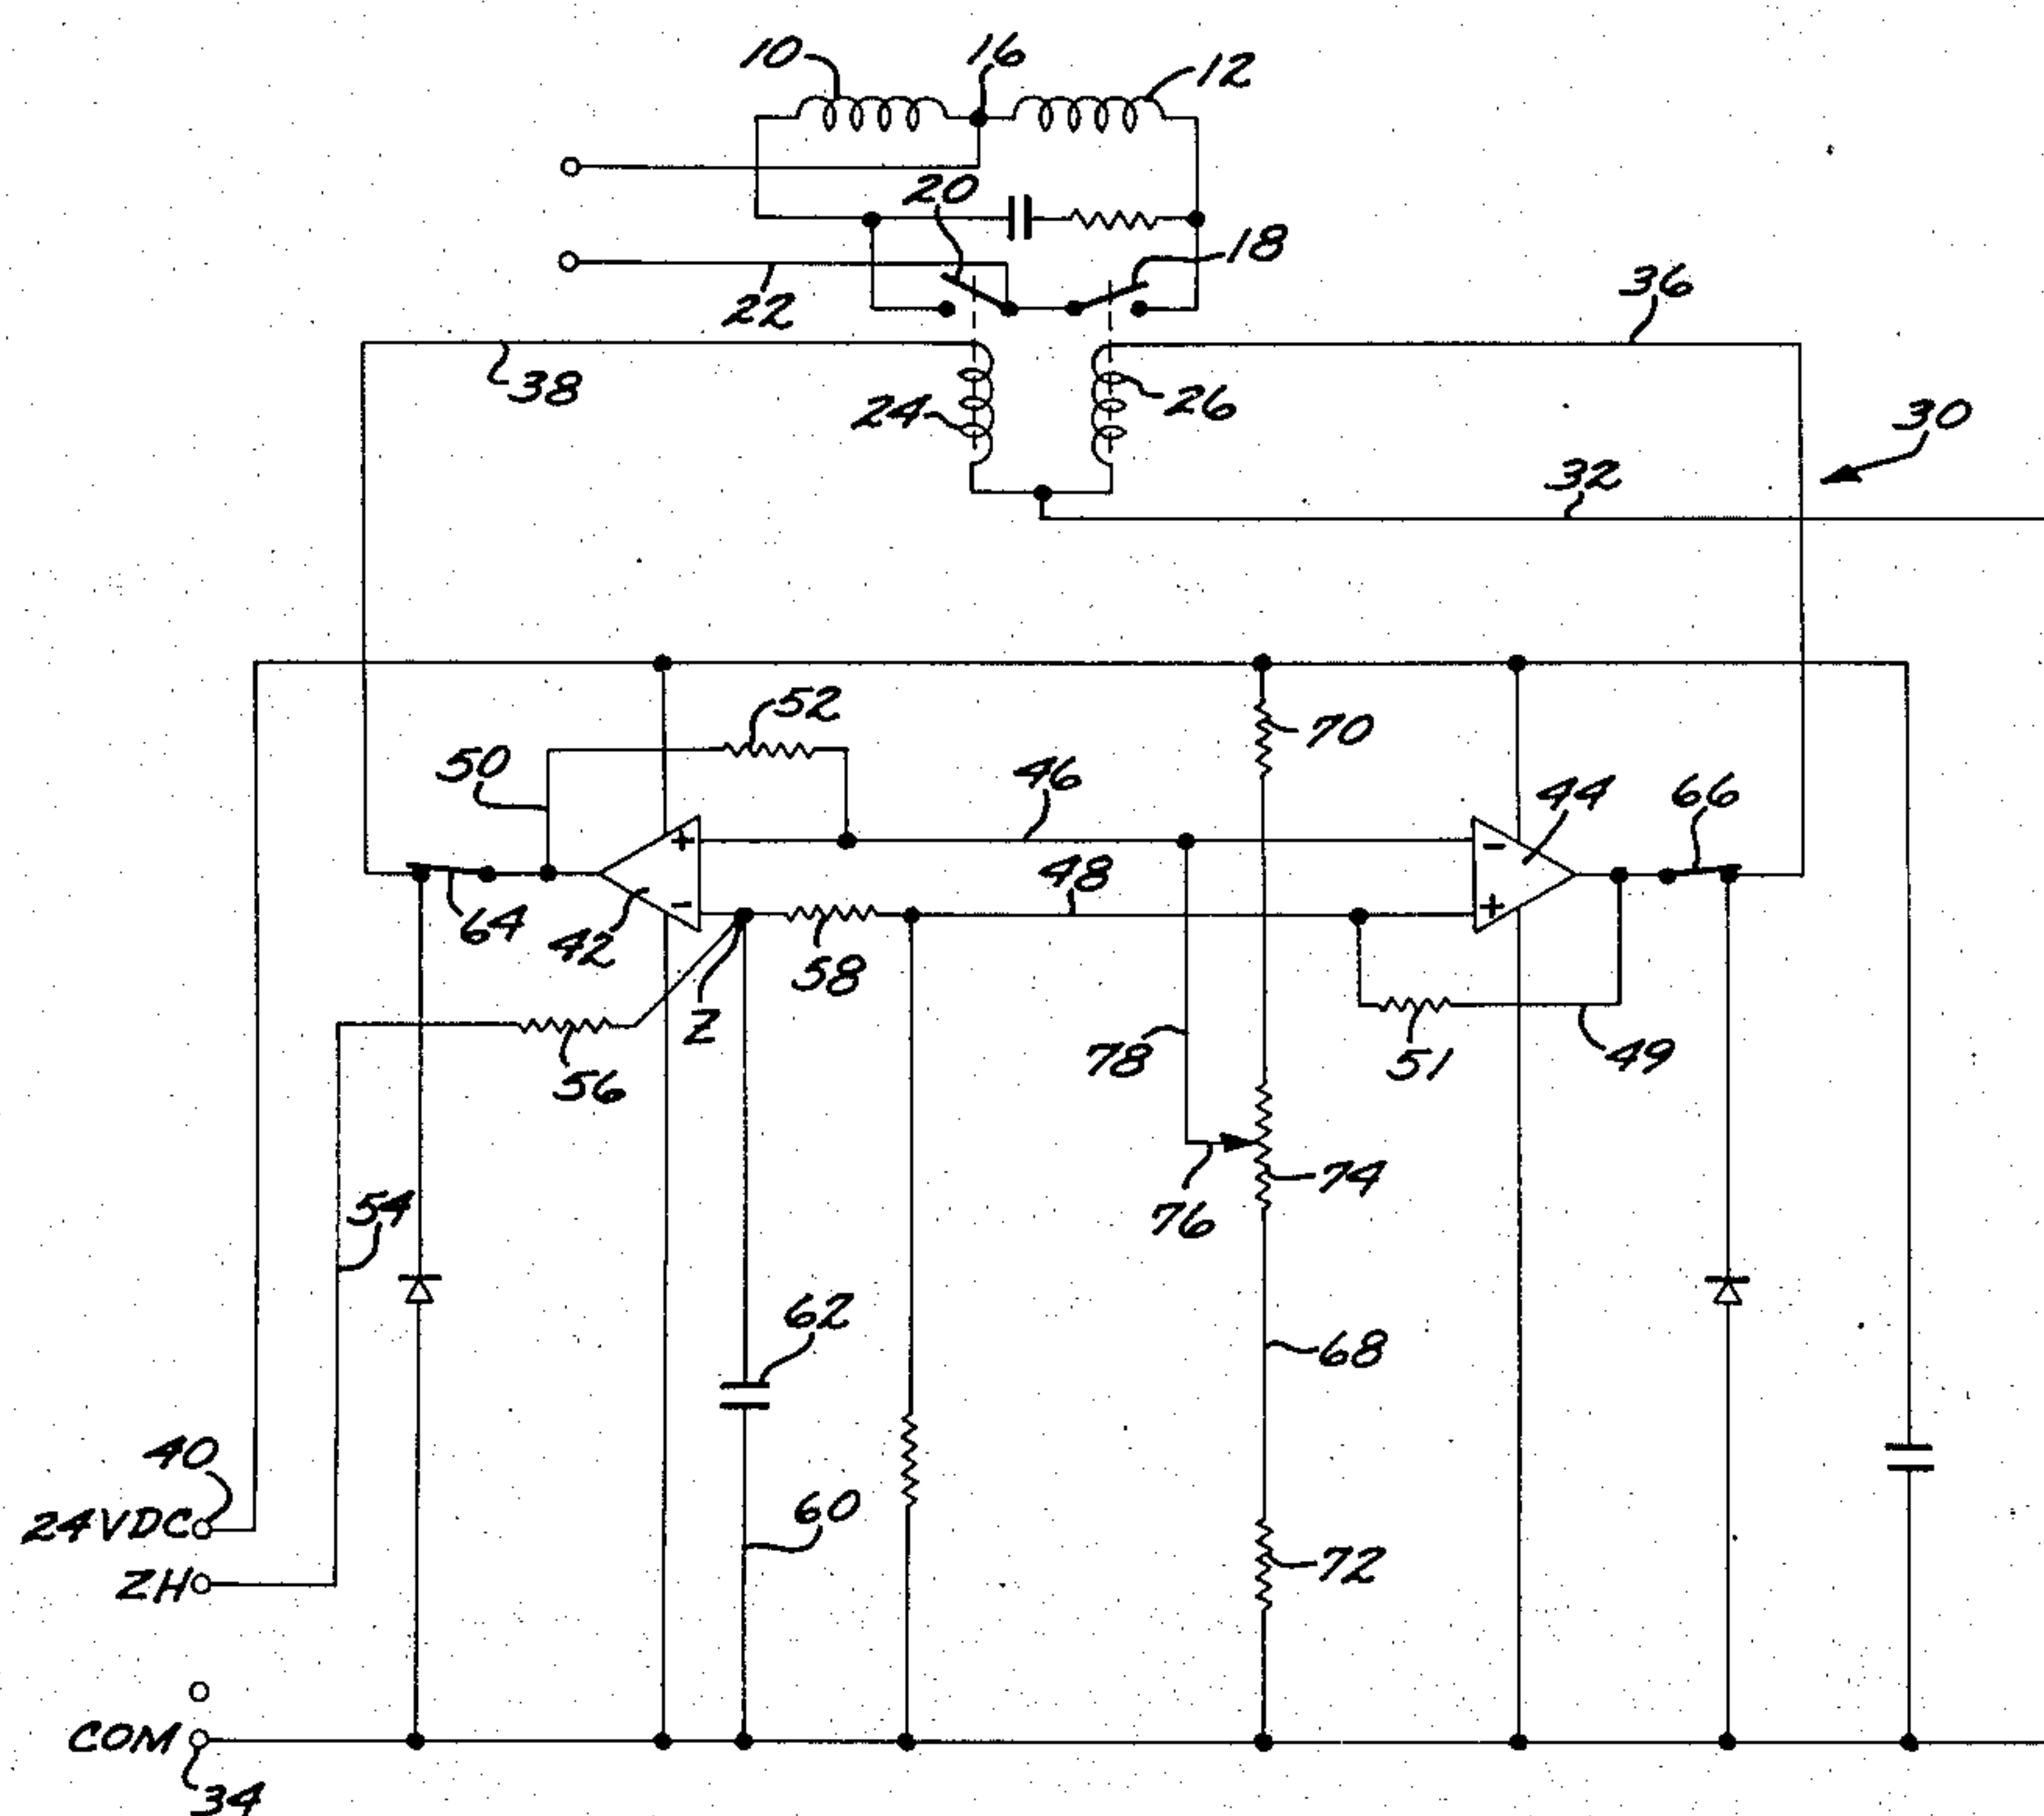 10 16 12
20
18
22
36
38
24 26
30
32
52
70
50
46
44 66
48
64 42
58
Z
78
51 49
56
76 74
54
62
68
40
60
24VDC
72
ZH
COM
34